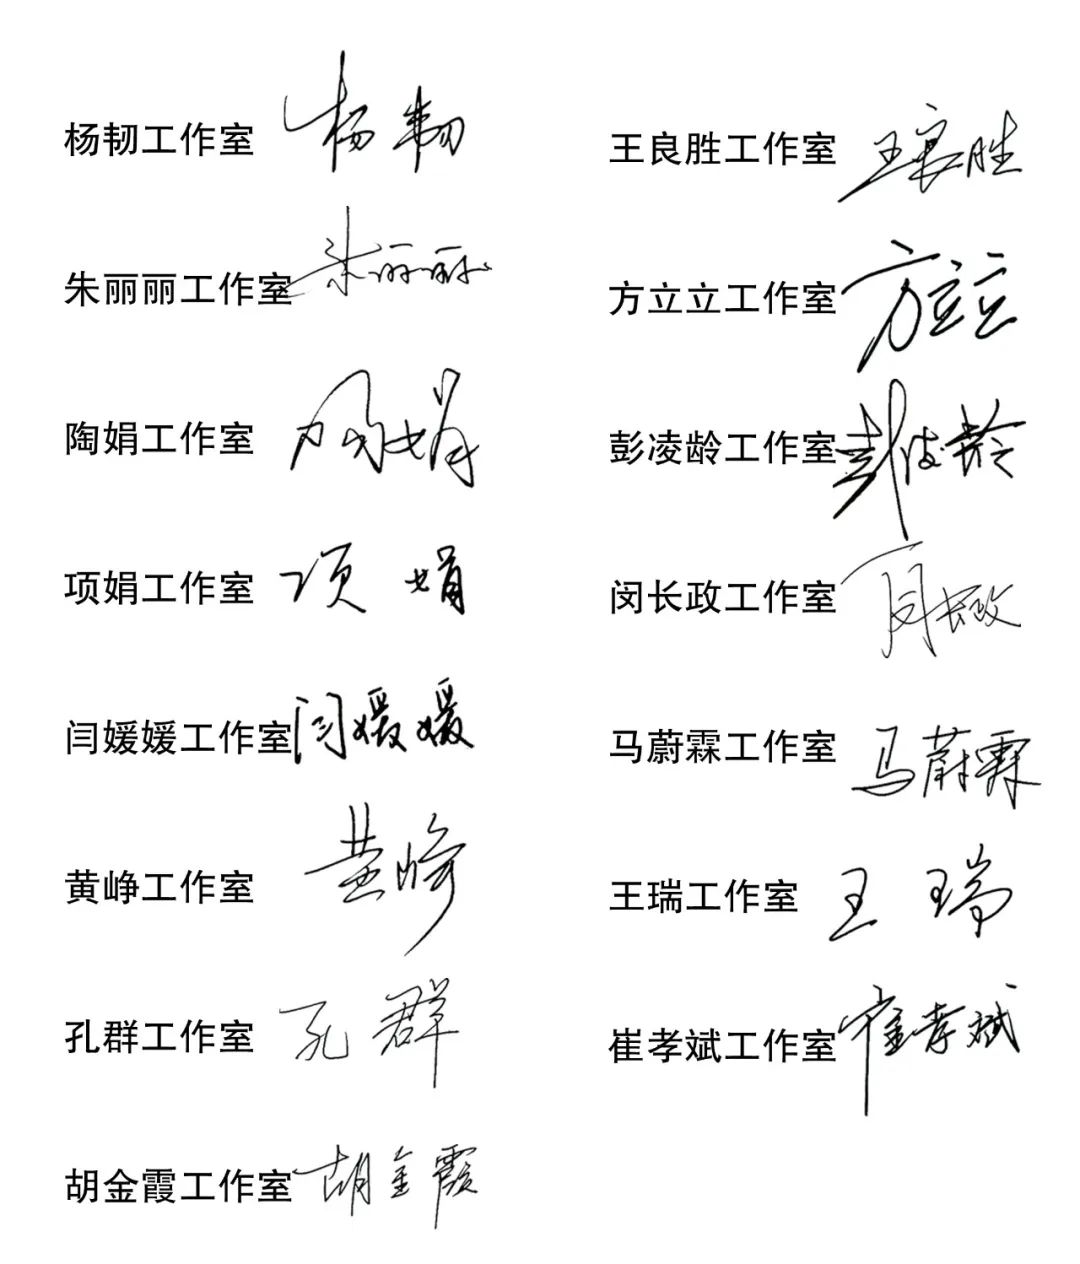 杨韧工作室 杨韧
朱丽丽工作室 朱丽丽
陶娟工作室 陶娟
项娟工作室 项娟
闫媛媛工作室 闫媛媛
黄峥工作室 黄峥
孔群工作室 孔群
胡金霞工作室 胡金霞
王良胜工作室 王良胜
方立立工作室 方立立
彭凌龄工作室 彭凌龄
闵长政工作室 闵长政
马蔚霖工作室 马蔚霖
王瑞工作室 王瑞
崔孝斌工作室 崔孝斌